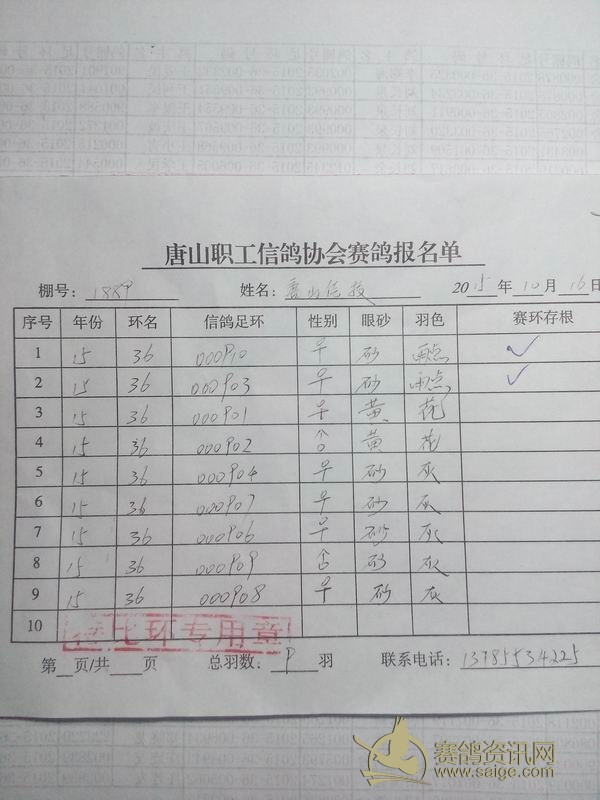 唐山职工信鸽协会赛鸽报名单
棚号：1889 姓名：唐山信技 2015年10月16日
序号 年份 环名 信鸽足环 性别 眼砂 羽色 赛环存根
1 15 36 000910 ♀ 砂 雨点 ✓
2 15 36 000903 ♀ 砂 雨点 ✓
3 15 36 000901 ♀ 黄 花
4 15 36 000902 ♂ 黄 花
5 15 36 000904 ♀ 砂 灰
6 15 36 000907 ♀ 砂 灰
7 15 36 000906 ♀ 砂 灰
8 15 36 000909 ♂ 砂 灰
9 15 36 000908 ♀ 砂 灰
10
比环专用章
第 页/共 页 总羽数：9 羽 联系电话：13785534225
赛鸽资讯网
www.saige.com